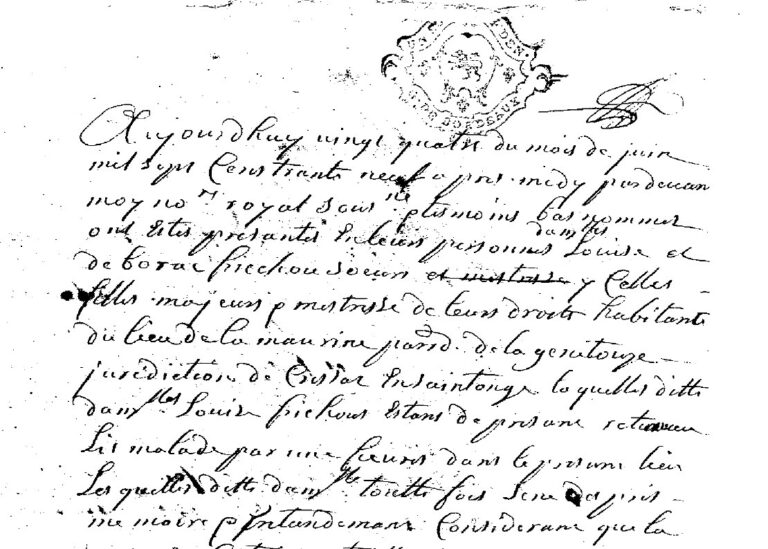 G. DE BORDEAUX
Aujourdhuy vingt quatre du mois de juin
mil sept Cens trante neuf a pres midy pardevan
moy no.re royal sous.ne et tesmoins bas nommes
ont Estes presantes En leurs personnes dam.lles Louise et
de borac frechou soeurs et mestresse y Celles
filles majeurs et mestresse de leurs droits habitante
du lieu de la maurine parr.d de la genetouze
jurediction de En saintonge laquelles ditte
dam.lles Louise frechou Estans de presant
Lit malade par une fievres dans le presant lieu
Lesquelles ditte dam.lle toutte fois sene des pris
me moire et Entandemant Considerant que la